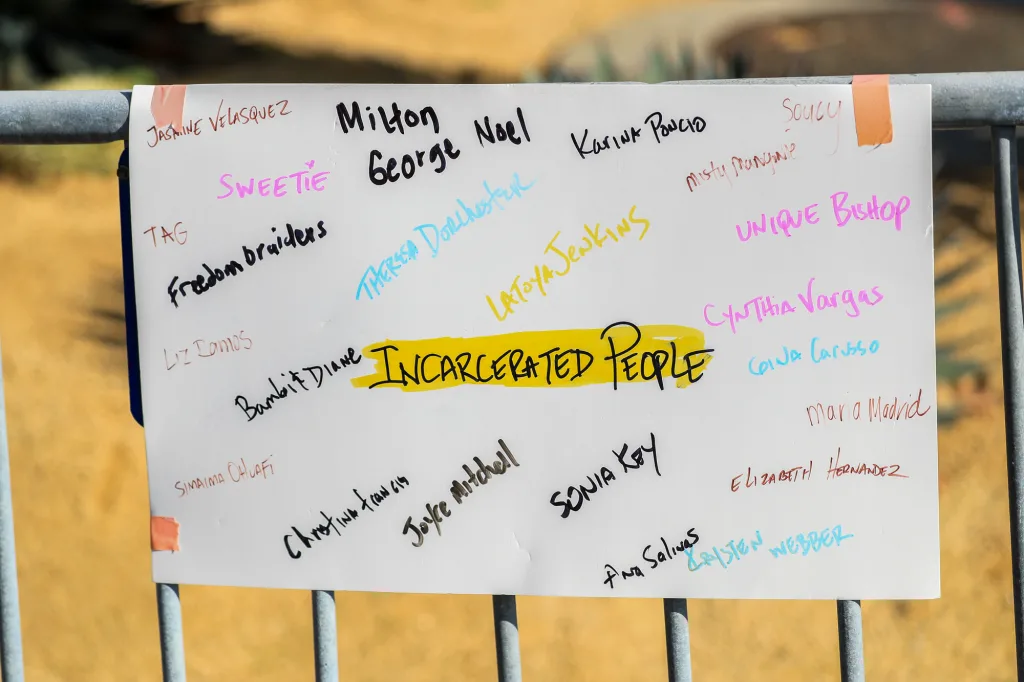 JASMINE VELASQUEZ
Milton
George Noel
Karina Poncio
Soucy
Misty Mangine
SWEETIE
TAG
Freedom braiders
THERESA DORCHESTER
LATOYA JENKINS
UNIQUE BISHOP
CYNTHIA Vargas
LIZ
Bambi & Diane
INCARCERATED PEOPLE
GINA CARUSSO
Maria Madrid
SIMAIMA
Christina Francis
Joyce Mitchell
SONIA KEY
ELIZABETH HERNANDEZ
Ana Salinas
KRYSTEN WEBBER